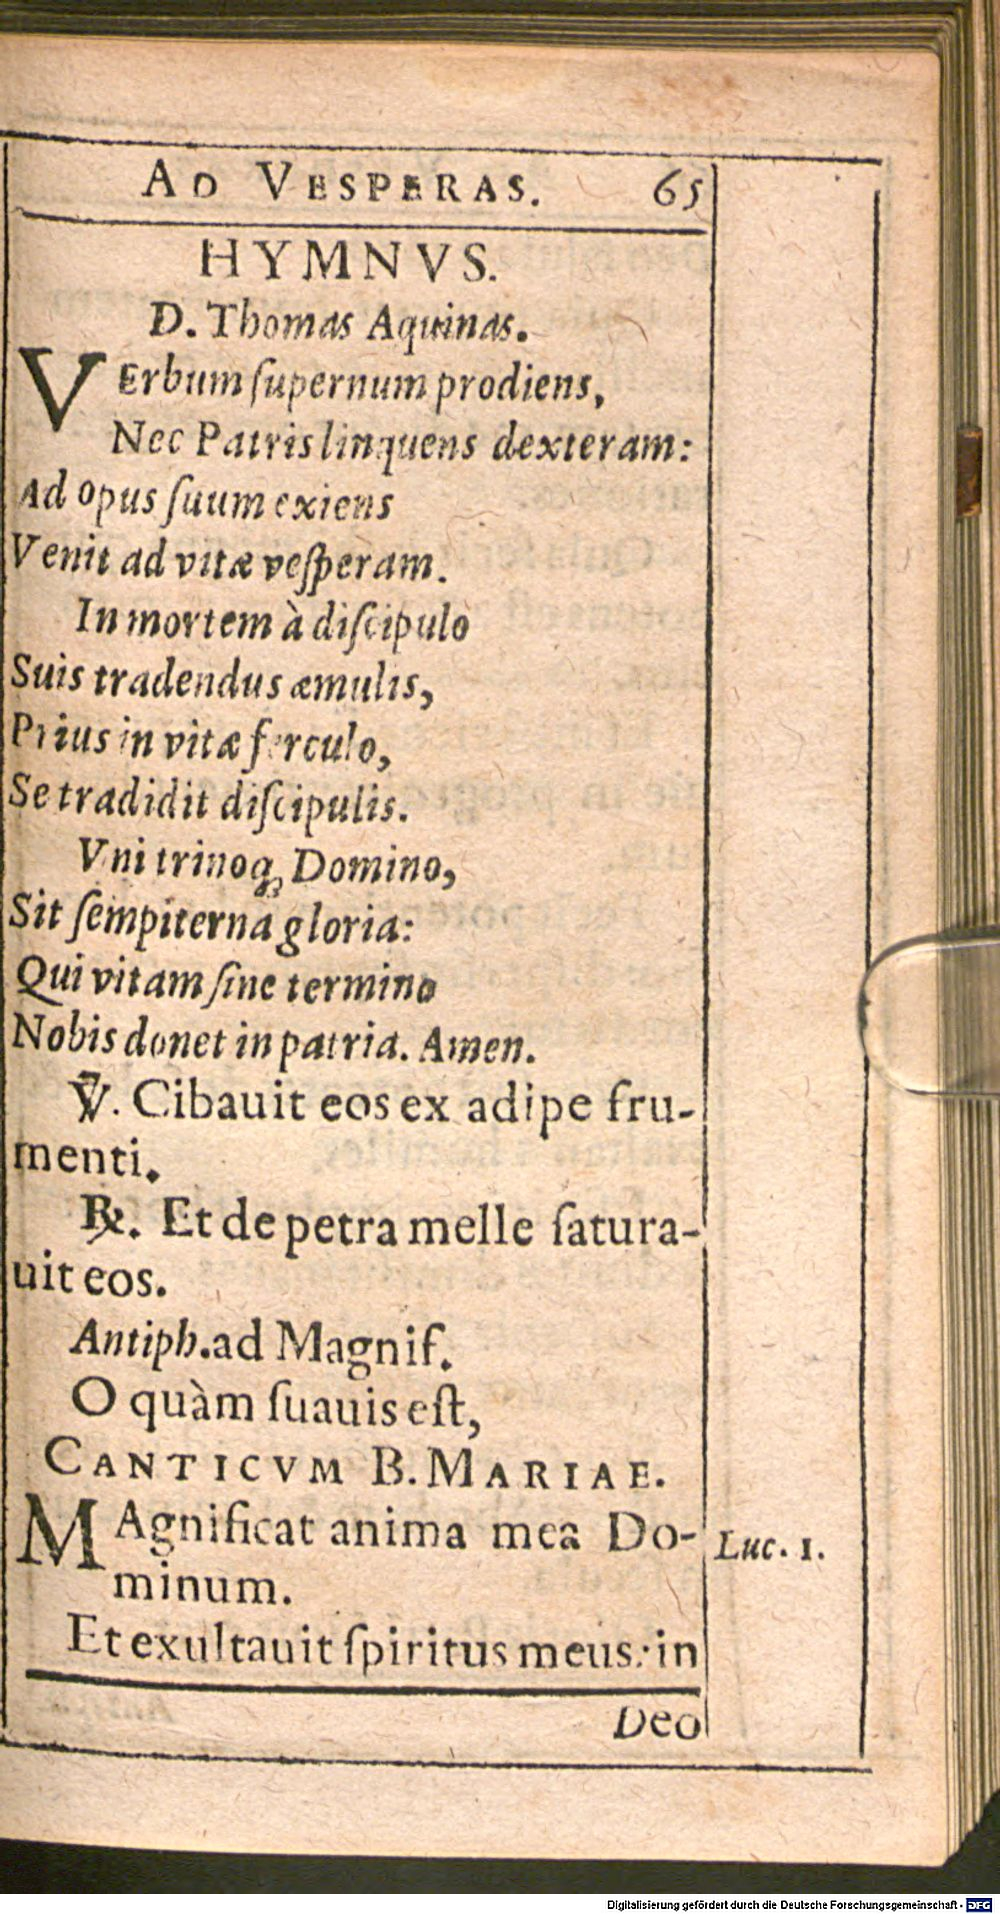 AD VESPERAS. 65
HYMNVS.
D. Thomas Aquinas.
VErbum ſupernum prodiens,
Nec Patris linquens dexteram:
Ad opus ſuum exiens
Venit ad vitæ veſperam.
In mortem à diſcipulo
Suis tradendus æmulis,
Prius in vitæ ferculo,
Se tradidit diſcipulis.
Vni trinoq; Domino,
Sit ſempiterna gloria:
Qui vitam ſine termino
Nobis donet in patria. Amen.
℣. Cibauit eos ex adipe fru-
menti.
℞. Et de petra melle ſatura-
uit eos.
Antiph. ad Magnif.
O quàm ſuauis eſt,
CANTICVM B. MARIAE.
MAgnificat anima mea Do-
minum.
Luc. 1.
Et exultauit ſpiritus meus: in
Deo
Digitalisierung gefördert durch die Deutsche Forschungsgemeinschaft - DFG